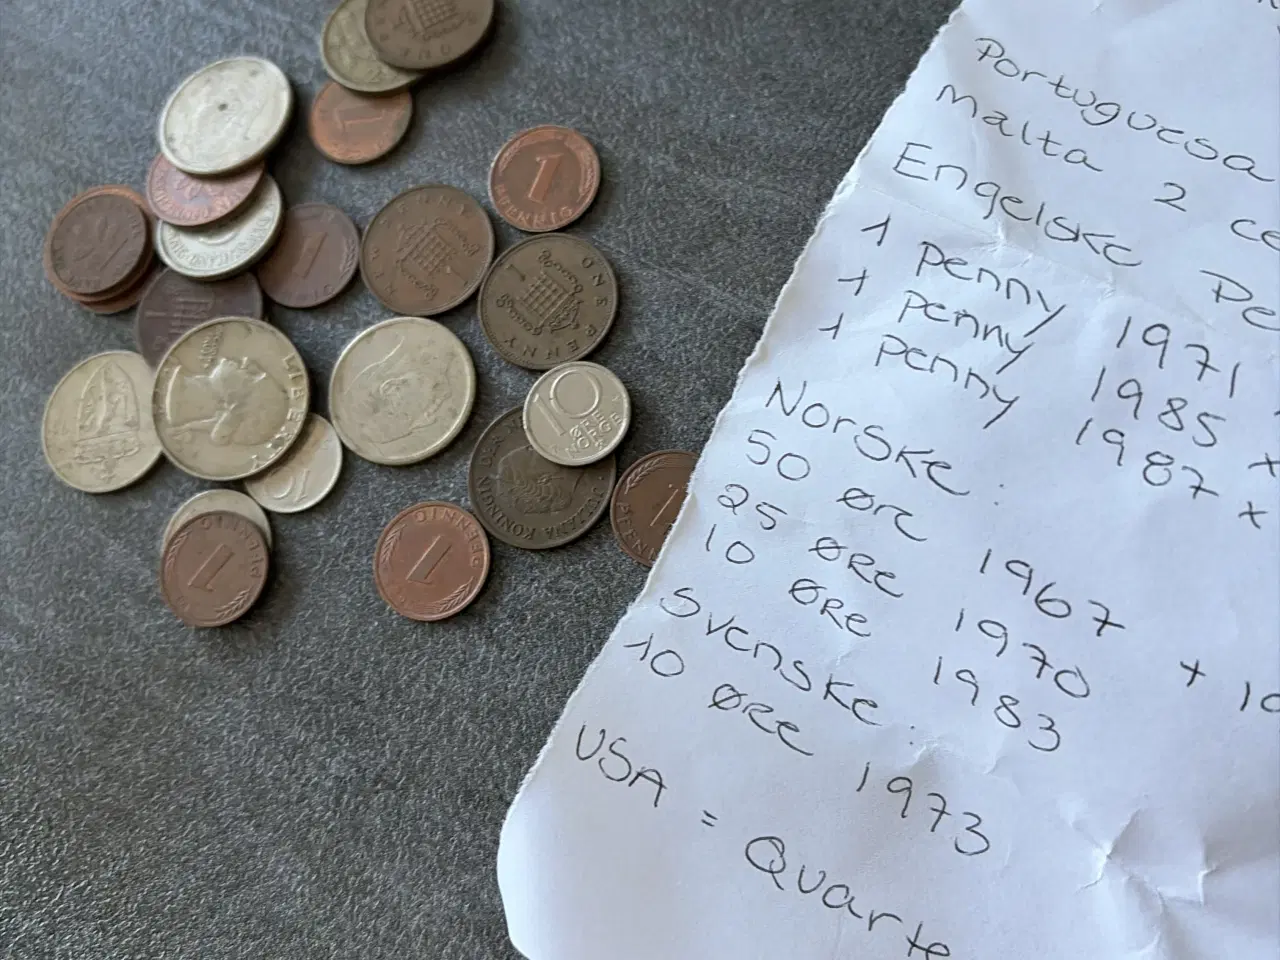 Portuguesa
Malta 2 ce
Engelske Pe
1 penny 1971
1 penny 1985 x
1 penny 1987 x
Norske:
50 øre 1967
25 øre 1970 + 10
10 øre 1983
Svenske:
10 øre 1973
USA = Quarte
1
1
PFENNIG
ONE PENNY
1
LIBERTY
10
ØRE
NORGE
JULIANA KONINGIN
1
PFENNIG
1
PFENNIG
1
PFENNIG